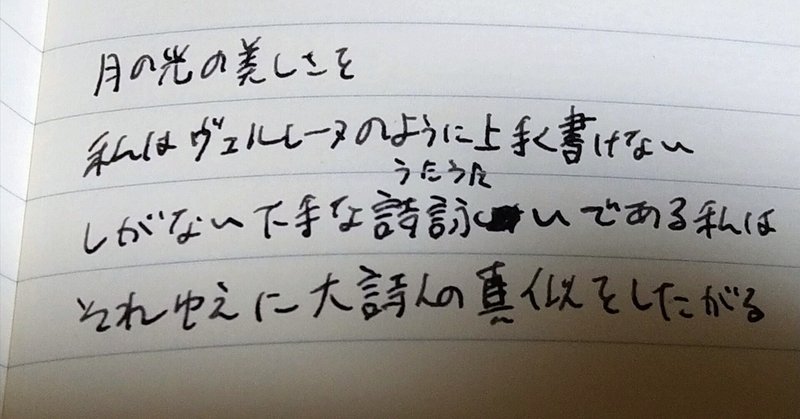 月の光の美しさを
私はヴェルレーヌのように上手く書けない
うたうた
しがない下手な詩詠いである私は
それゆえに大詩人の真似をしたがる